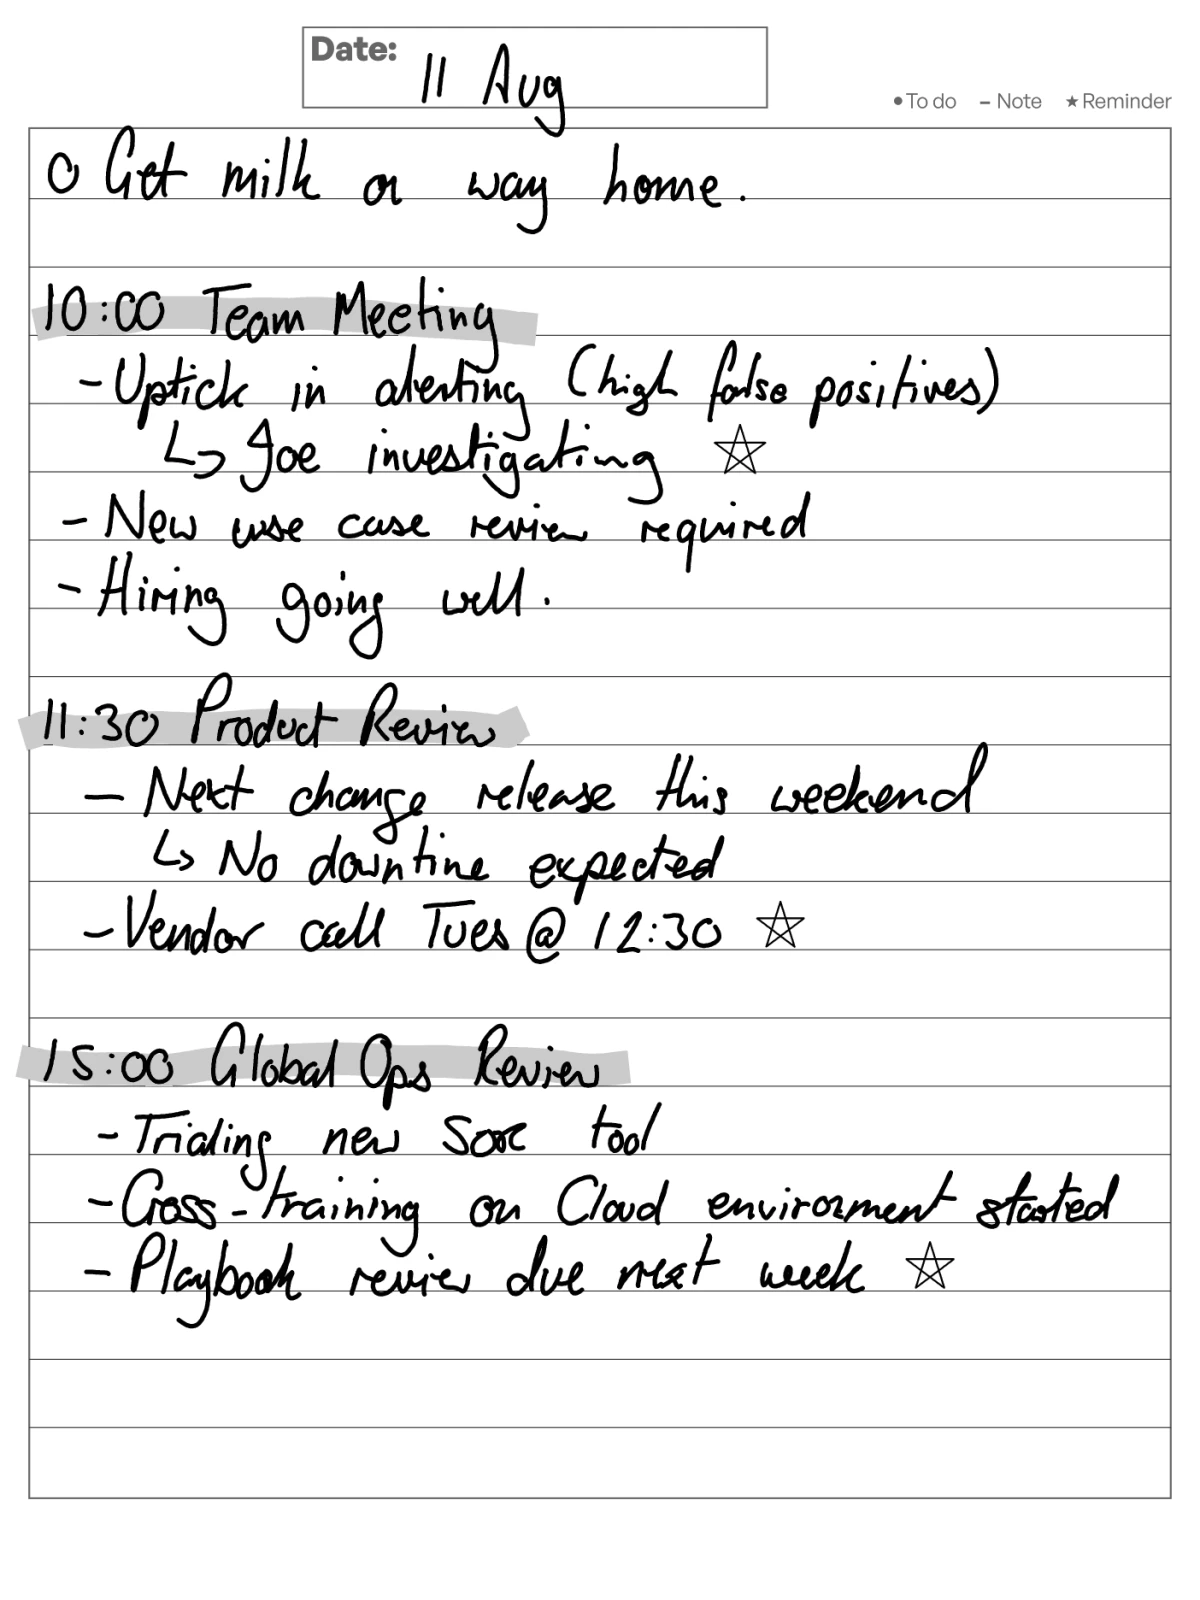 Date: 11 Aug
• To do – Note ★ Reminder
O Get milk on way home.
10:00 Team Meeting
- Uptick in alerting (high false positives)
↳ Joe investigating ☆
- New use case review required
- Hiring going well.
11:30 Product Review
- Next change release this weekend
↳ No downtime expected
- Vendor call Tues @ 12:30 ☆
15:00 Global Ops Review
- Trialing new tool
- Cross-training on Cloud environment started
- Playbook review due next week ☆